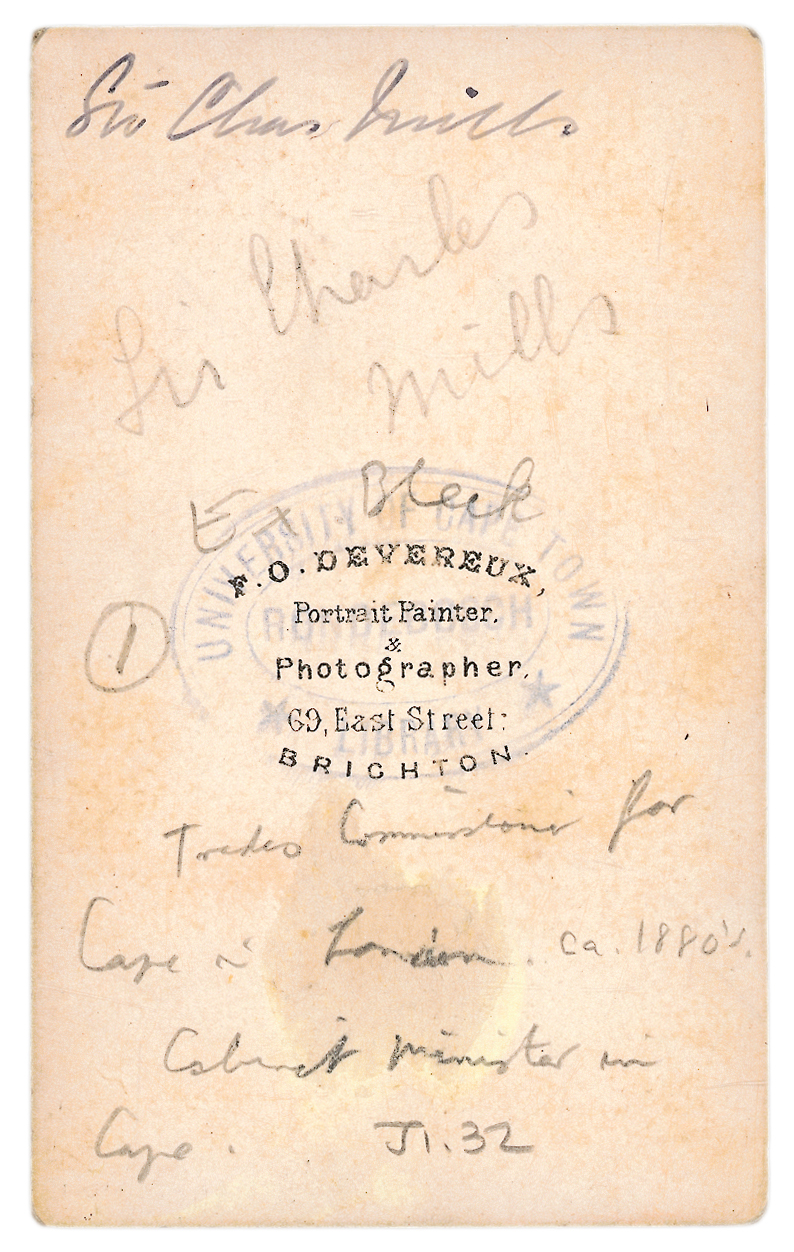 Sir Chas Mills
Sir Charles
Mills
Ex Bleek
UNIVERSITY OF CAPE TOWN
RONDEBOSCH
LIBRARY
F. O. DEVEREUX,
Portrait Painter,
&
Photographer,
69, East Street:
BRIGHTON.
1
Trades Commissioner for
Cape in London. ca. 1880's.
Cabinet Minister in
Cape. J1.32